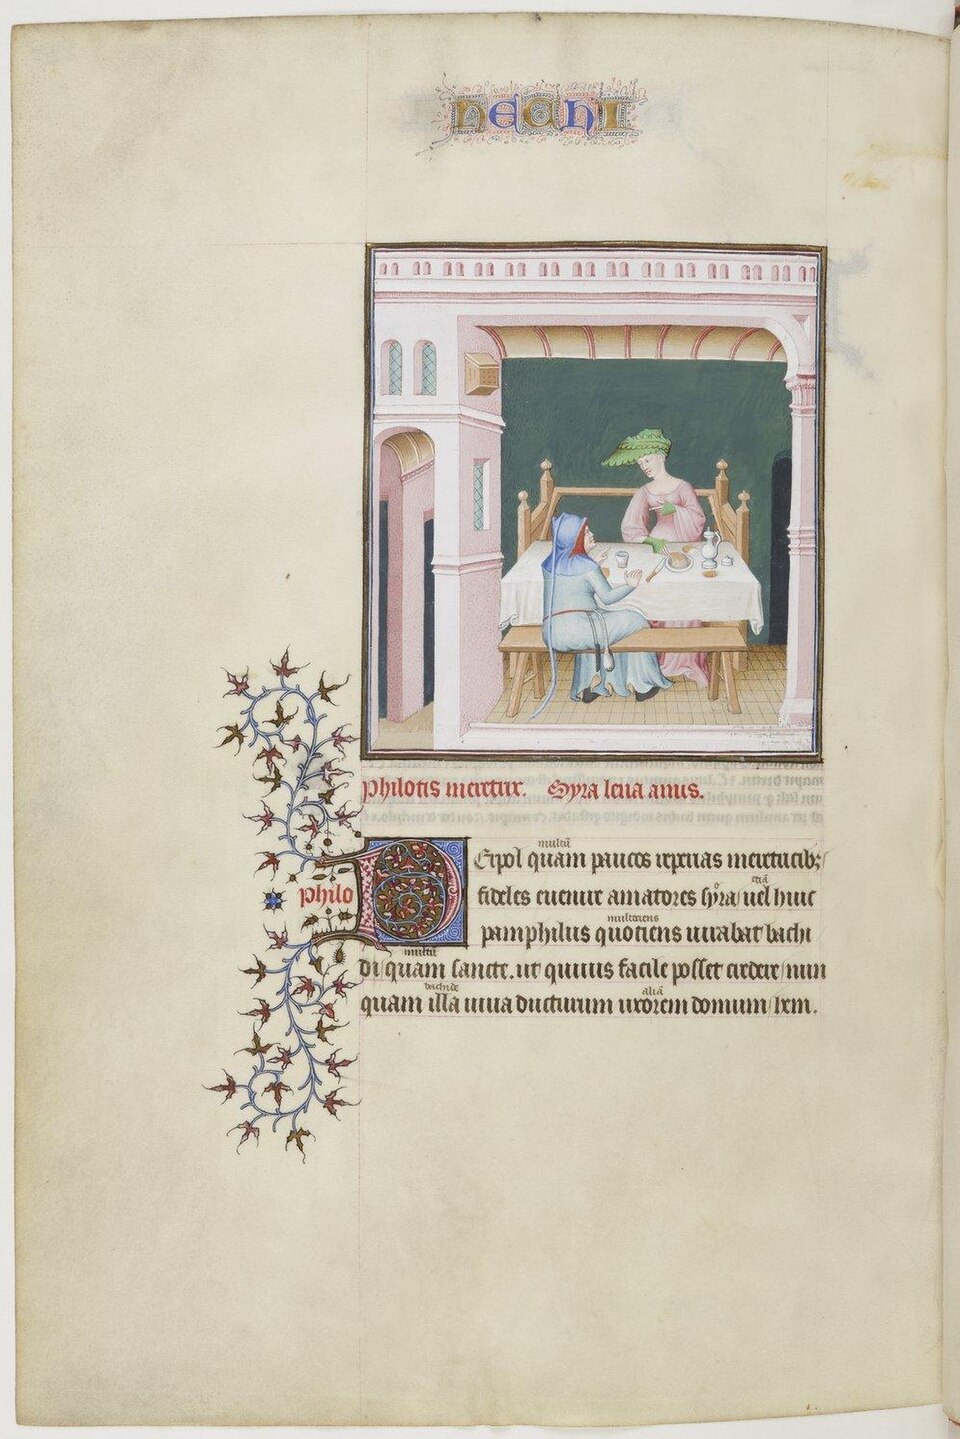 hechi
philotis meretrix. Syra lena anus.
multū
Epol quam paucos reperias meretricib;
philo
etiā
fideles euenire amatores syra uel huic
multociens
pamphilus quotiens iurabat bachi
multū
di quam sancte. ut quiuis facile posset credere nun
bachide
aliā
quam illa uiua ducturum uxorem domum